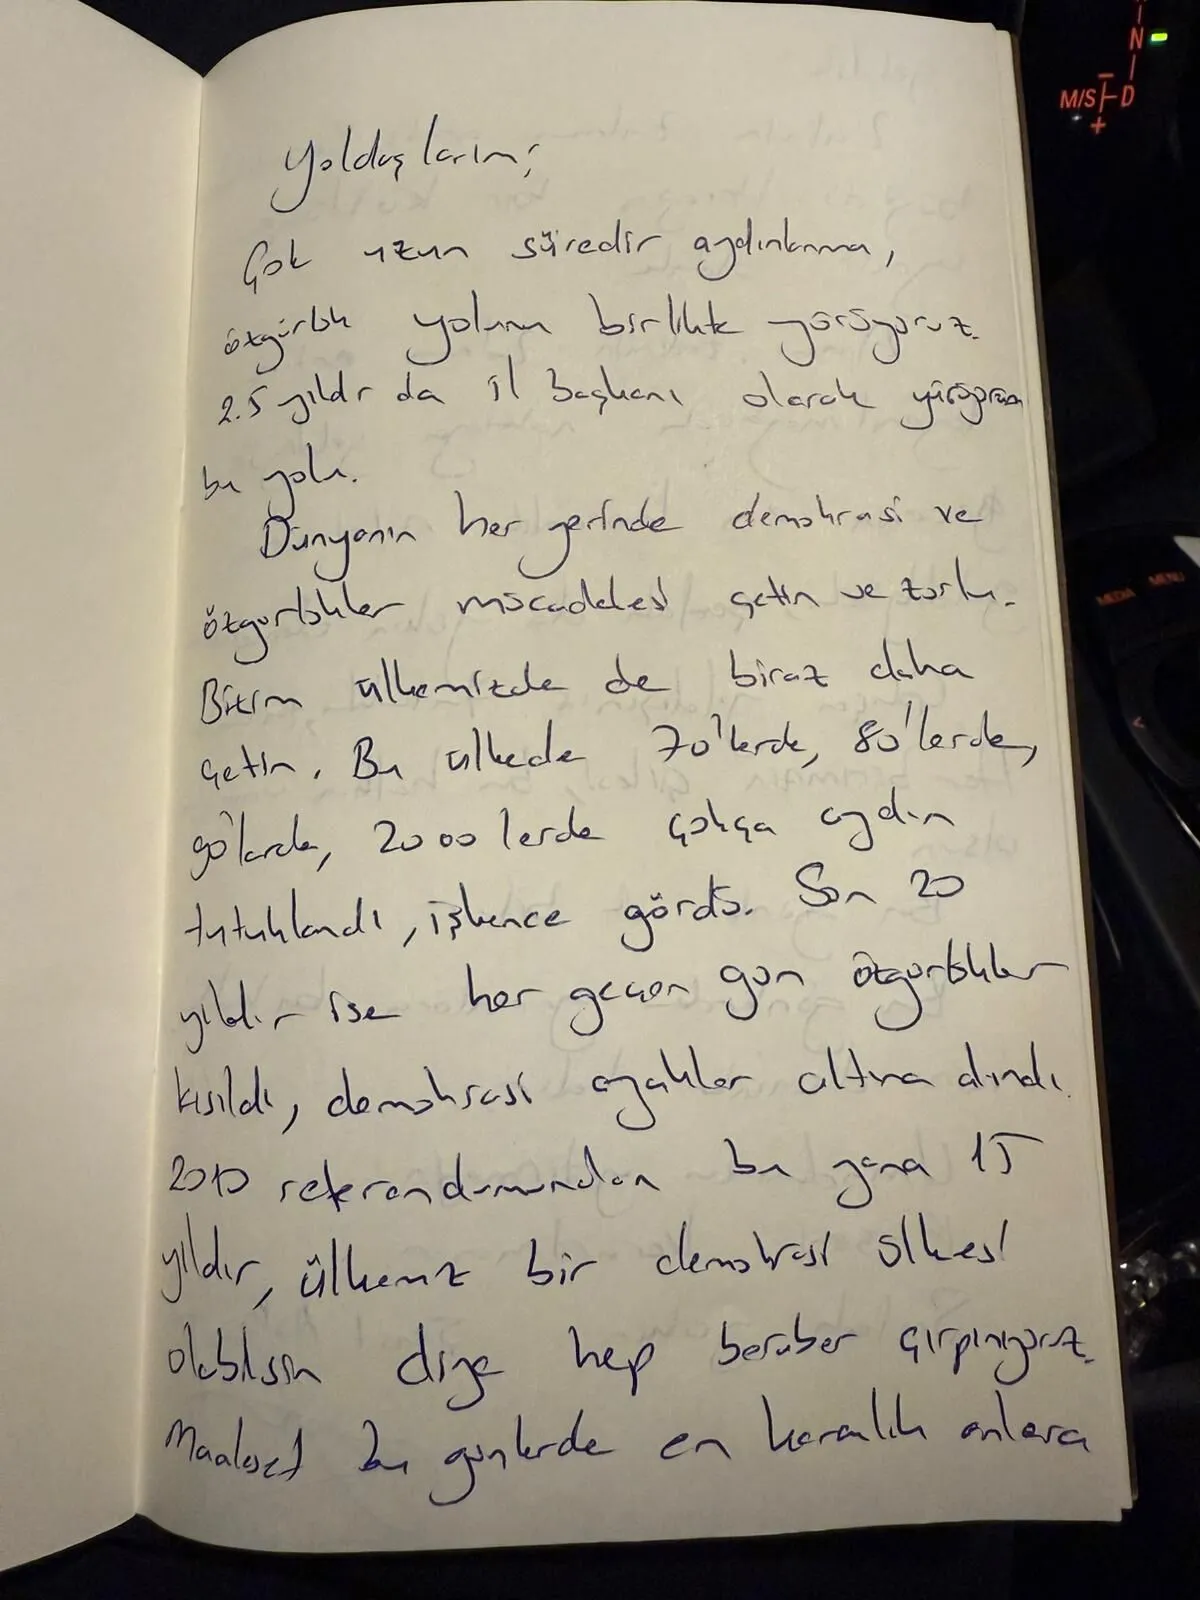 Yoldaşlarım;
Çok uzun süredir aydınlanma,
özgürlük yolunu birlikte yürüyoruz.
2.5 yıldır da il başkanı olarak yürüyorum
bu yolu.
Dünyanın her yerinde demokrasi ve
özgürlükler mücadelesi çetin ve zorlu.
Bizim ülkemizde de biraz daha
çetin. Bu ülkede 70'lerde, 80'lerde,
90'larda, 2000lerde çokça aydın
tutuklandı, işkence gördü. Son 20
yıldır ise her geçen gün özgürlükler
kısıldı, demokrasi ayaklar altına alındı.
2010 referandumundan bu yana 15
yıldır, ülkemiz bir demokrasi ülkesi
olabilsin diye hep beraber çırpınıyoruz.
Maalesef bu günlerde en karanlık anlara
N
M/S
D
+
MEDIA MENU